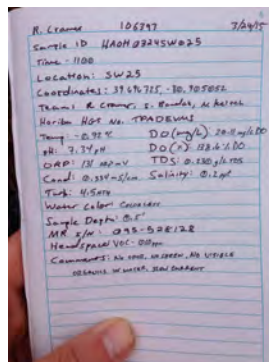 R. Cramer 106397 3/24/15
Sample ID HAOH03245W025
Time - 1100
Location: SW25
Coordinates: 39.696725, -80.905052
Team: R Cramer, S.
Horiba HGS No. TPADEVMS
Temp: -0.92°C DO (mg/L):
pH: 7.34 pH DO (%):
ORP: 131 mV TDS: 0.230 g/L TDS
Cond: 0.354 mS/cm Salinity: 0.2 ppt
Turb: 4.5 NTU
Water Color: Colorless
Sample Depth: 0.5'
MR s/n: 095-528128
Headspace VOC - 00ppm
Comments: No odor, no sheen, No visible
in water, slow current